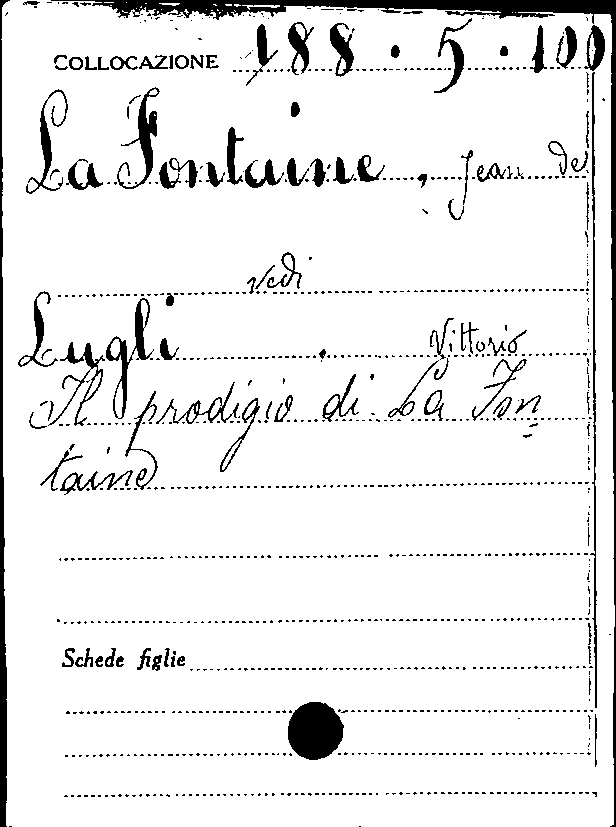 COLLOCAZIONE 188 · 5 · 100
La Fontaine, Jean de
vedi
Lugli . Vittorio
Il prodigio di La Fon
taine
Schede figlie